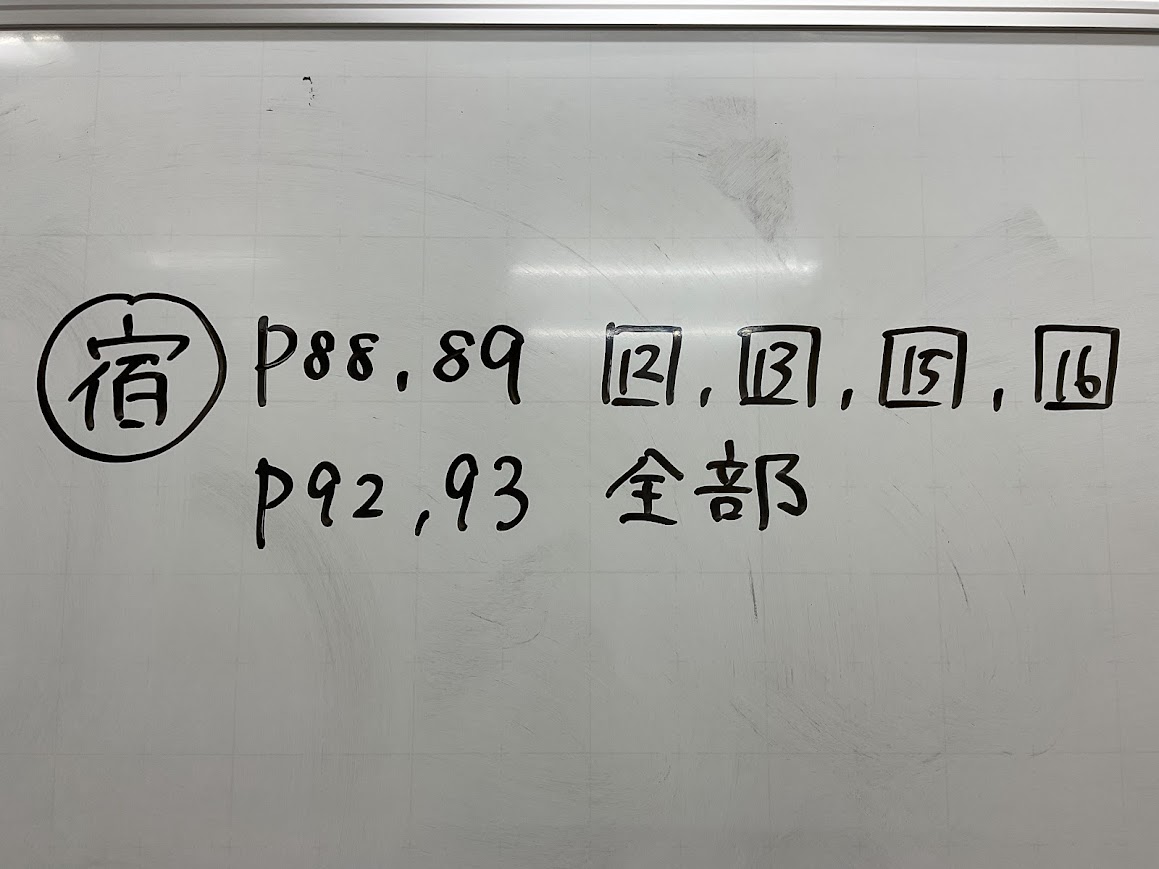 宿 p88, 89 12, 13, 15, 16
p92, 93 全部